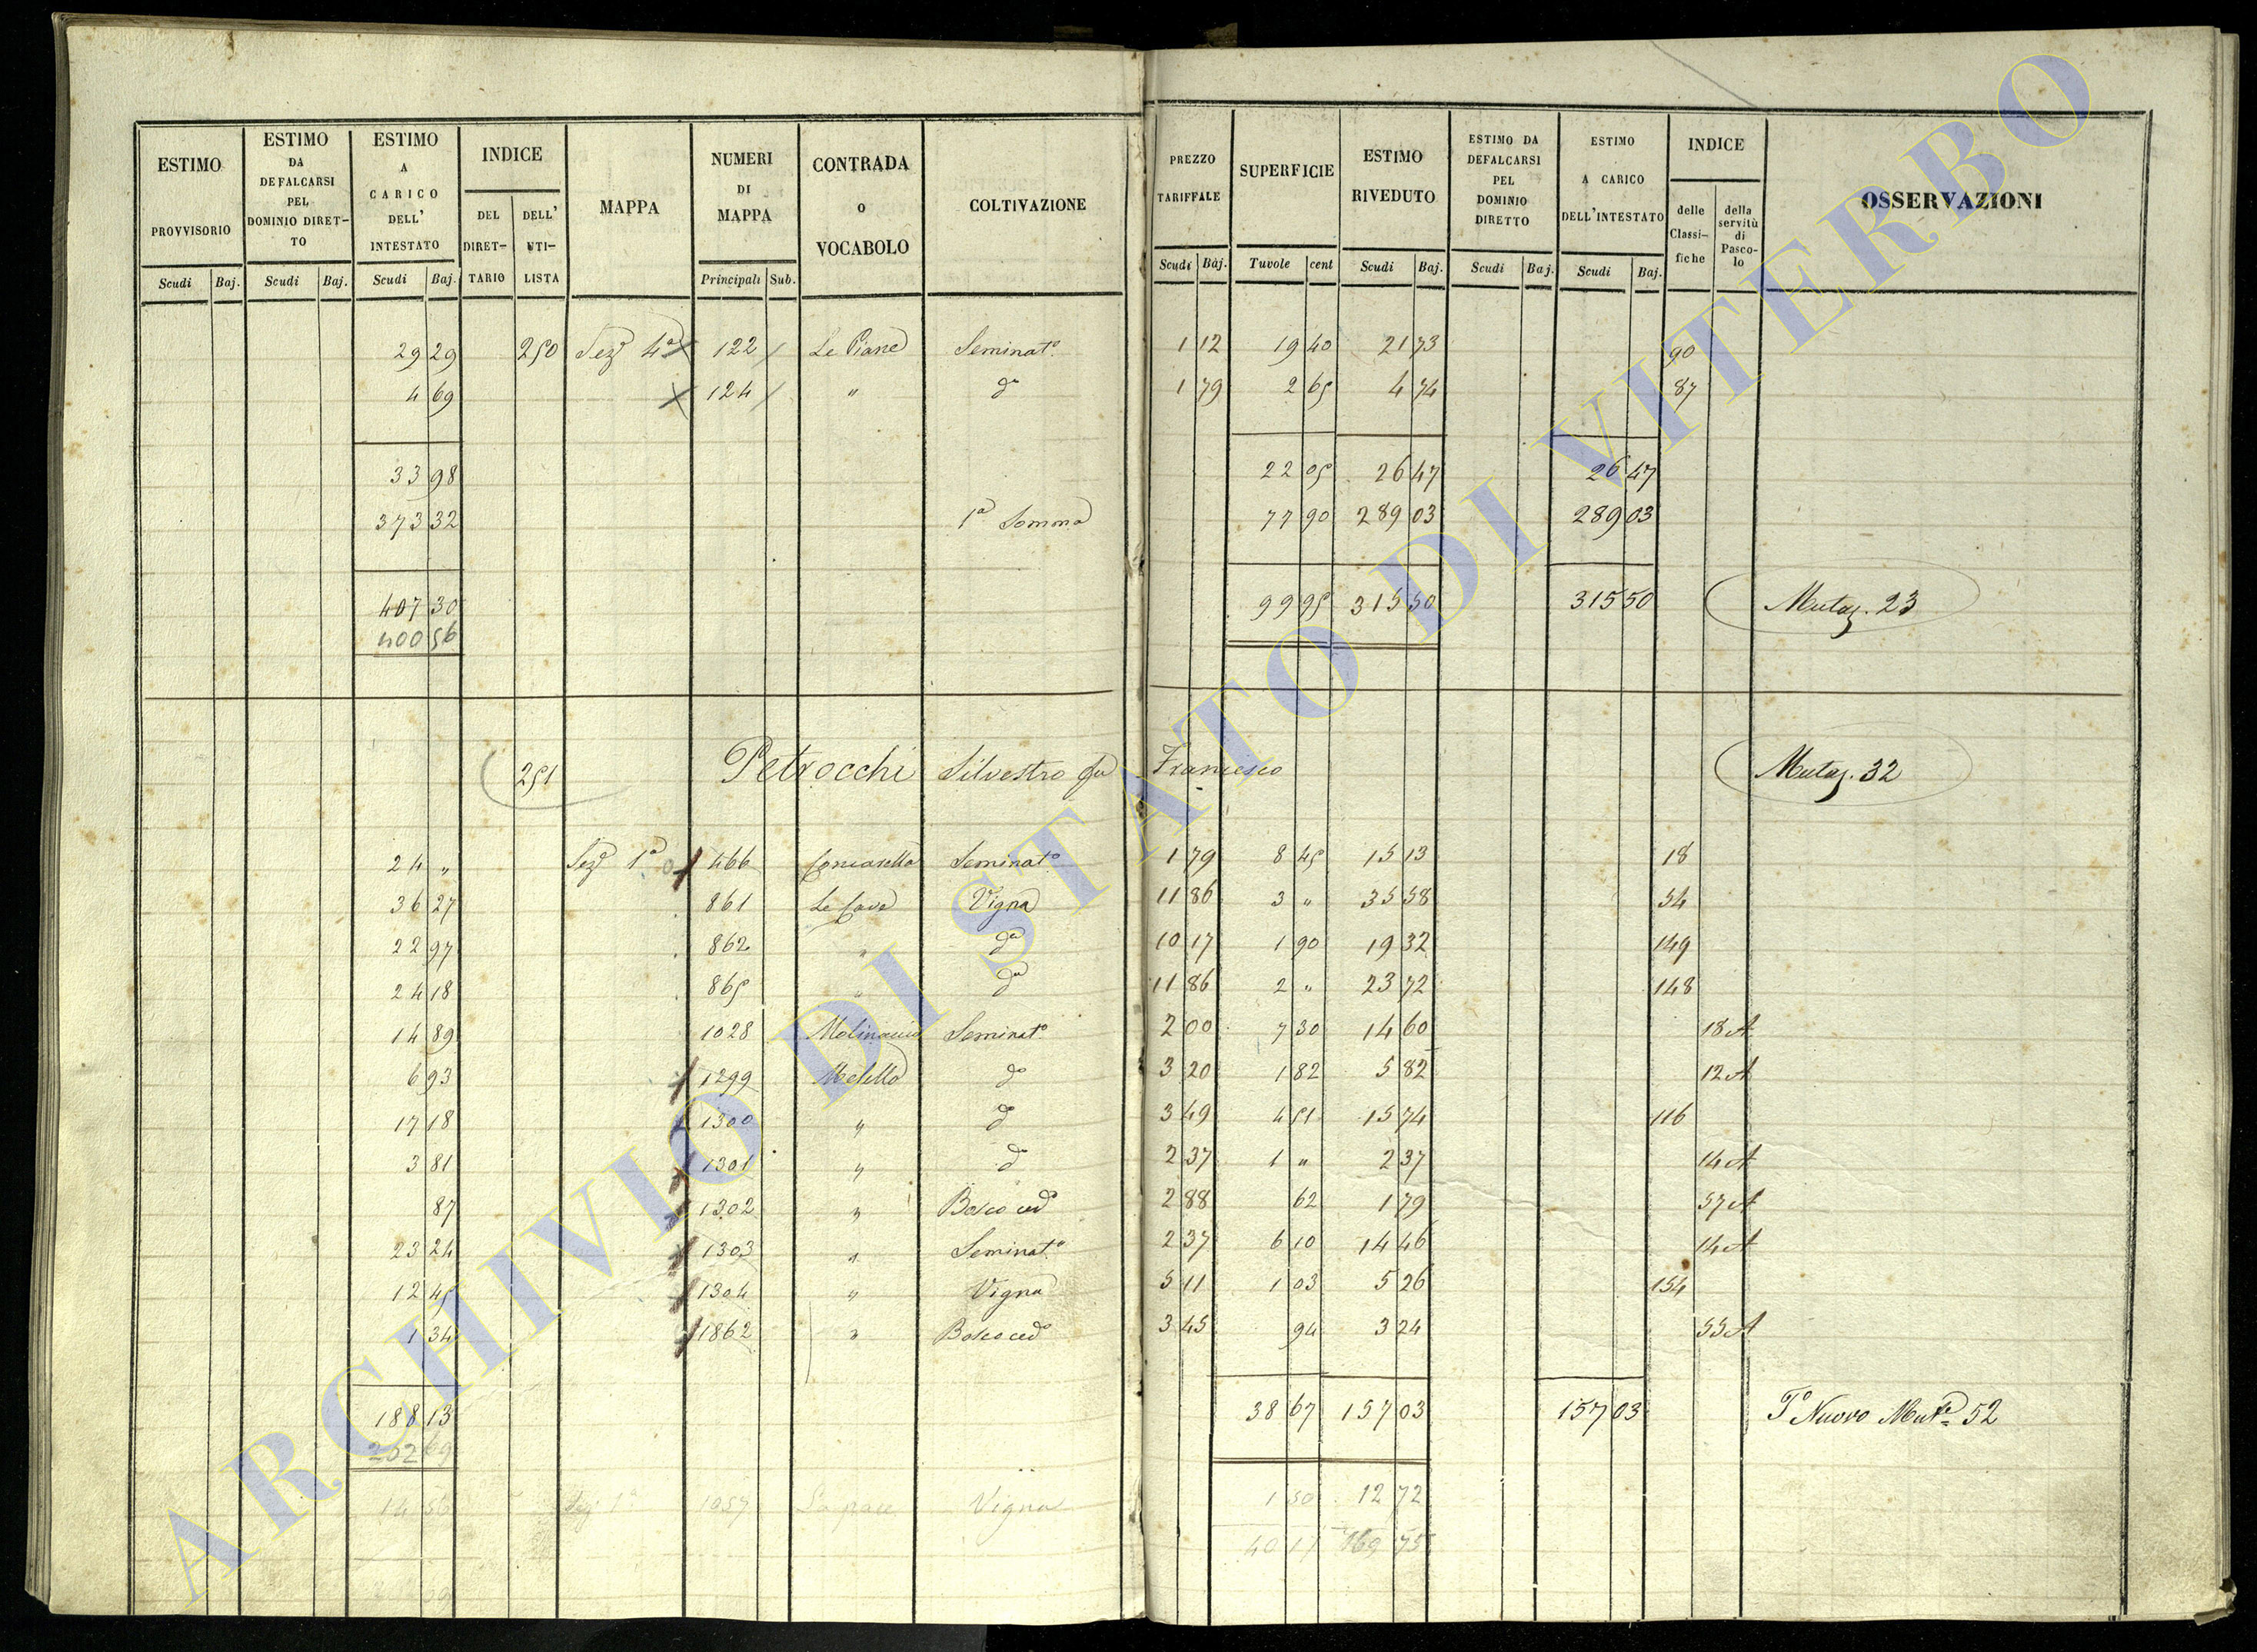 ESTIMO PROVVISORIO Scudi Baj.
ESTIMO DA DEFALCARSI PEL DOMINIO DIRET-TO Scudi Baj.
ESTIMO A CARICO DELL' INTESTATO Scudi Baj.
INDICE DEL DIRET-TARIO DELL' UTI-LISTA
MAPPA
NUMERI DI MAPPA Principali Sub.
CONTRADA o VOCABOLO
COLTIVAZIONE
PREZZO TARIFFALE Scudi Baj.
SUPERFICIE Tuvole cent
ESTIMO RIVEDUTO Scudi Baj.
ESTIMO DA DEFALCARSI PEL DOMINIO DIRETTO Scudi Baj.
ESTIMO A CARICO DELL'INTESTATO Scudi Baj.
INDICE delle Classi-fiche della servitù di Pasco-lo
OSSERVAZIONI
29 29 250 Sez.e 4a 122 Le Piane Seminat.o 1 12 19 40 21 73 90
4 69 124 " do 1 79 2 65 4 74 87
33 98 22 05 26 47 26 47
373 32 1a Somma 77 90 289 03 289 03
407 30 99 95 315 50 315 50 Mutaz. 23
400 56
251 Petrocchi Silvestro fu Francesco Mutaz. 32
24 " Sez.e 1a 466 Seminat.o 1 79 8 45 15 13 18
36 27 861 Le Cave Vigna 11 86 3 " 35 58 54
22 97 862 " da 10 17 1 90 19 32 149
24 18 865 " da 11 86 2 " 23 72 148
14 89 1028 Seminat.o 2 00 7 30 14 60 18 A
6 93 1299 do 3 20 1 82 5 82 12 A
17 18 1300 " do 3 49 4 51 15 74 116
3 81 1301 " do 2 37 1 " 2 37 14 A
87 1302 " Bosco ced.o 2 88 62 1 79 57 A
23 24 1303 " Seminat.o 2 37 6 10 14 46 14 A
12 45 1304 " Vigna 5 11 1 03 5 26 154
1 34 1862 " Bosco ced.o 3 45 94 3 24 55 A
188 13 38 67 157 03 157 03 T.o Nuovo Mut.e 52
202 69
14 56 Sez. 1a 1057 Vigna 1 50 12 72
40 17 169 75
ARCHIVIO DI STATO DI VITERBO